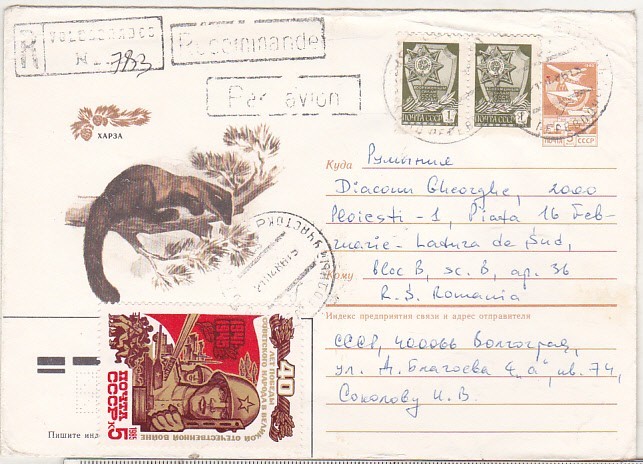 R VOLGOGRADCCC
N 783
Recommande
Par avion
ХАРЗА
ПОЧТА СССР 1к
ПОЧТА СССР 1к
ПОЧТА 5к СССР
Куда Румыния
Diaconu Gheorghe, 2000
Ploiesti - 1, Piața 16 Feb-
ruarie - Latura de Sud,
Кому bloc B, sc. B, ap. 36
R.S. Romania
Индекс предприятия связи и адрес отправителя
СССР, 400066 Волгоград,
ул. Д. Благоева 4 "а", кв. 74,
Соколову И. В.
40
ЛЕТ ПОБЕДЫ
СОВЕТСКОГО НАРОДА В ВЕЛИКОЙ ОТЕЧЕСТВЕННОЙ ВОЙНЕ
1945
1985
ПОЧТА СССР 1985 5к
Пишите инд